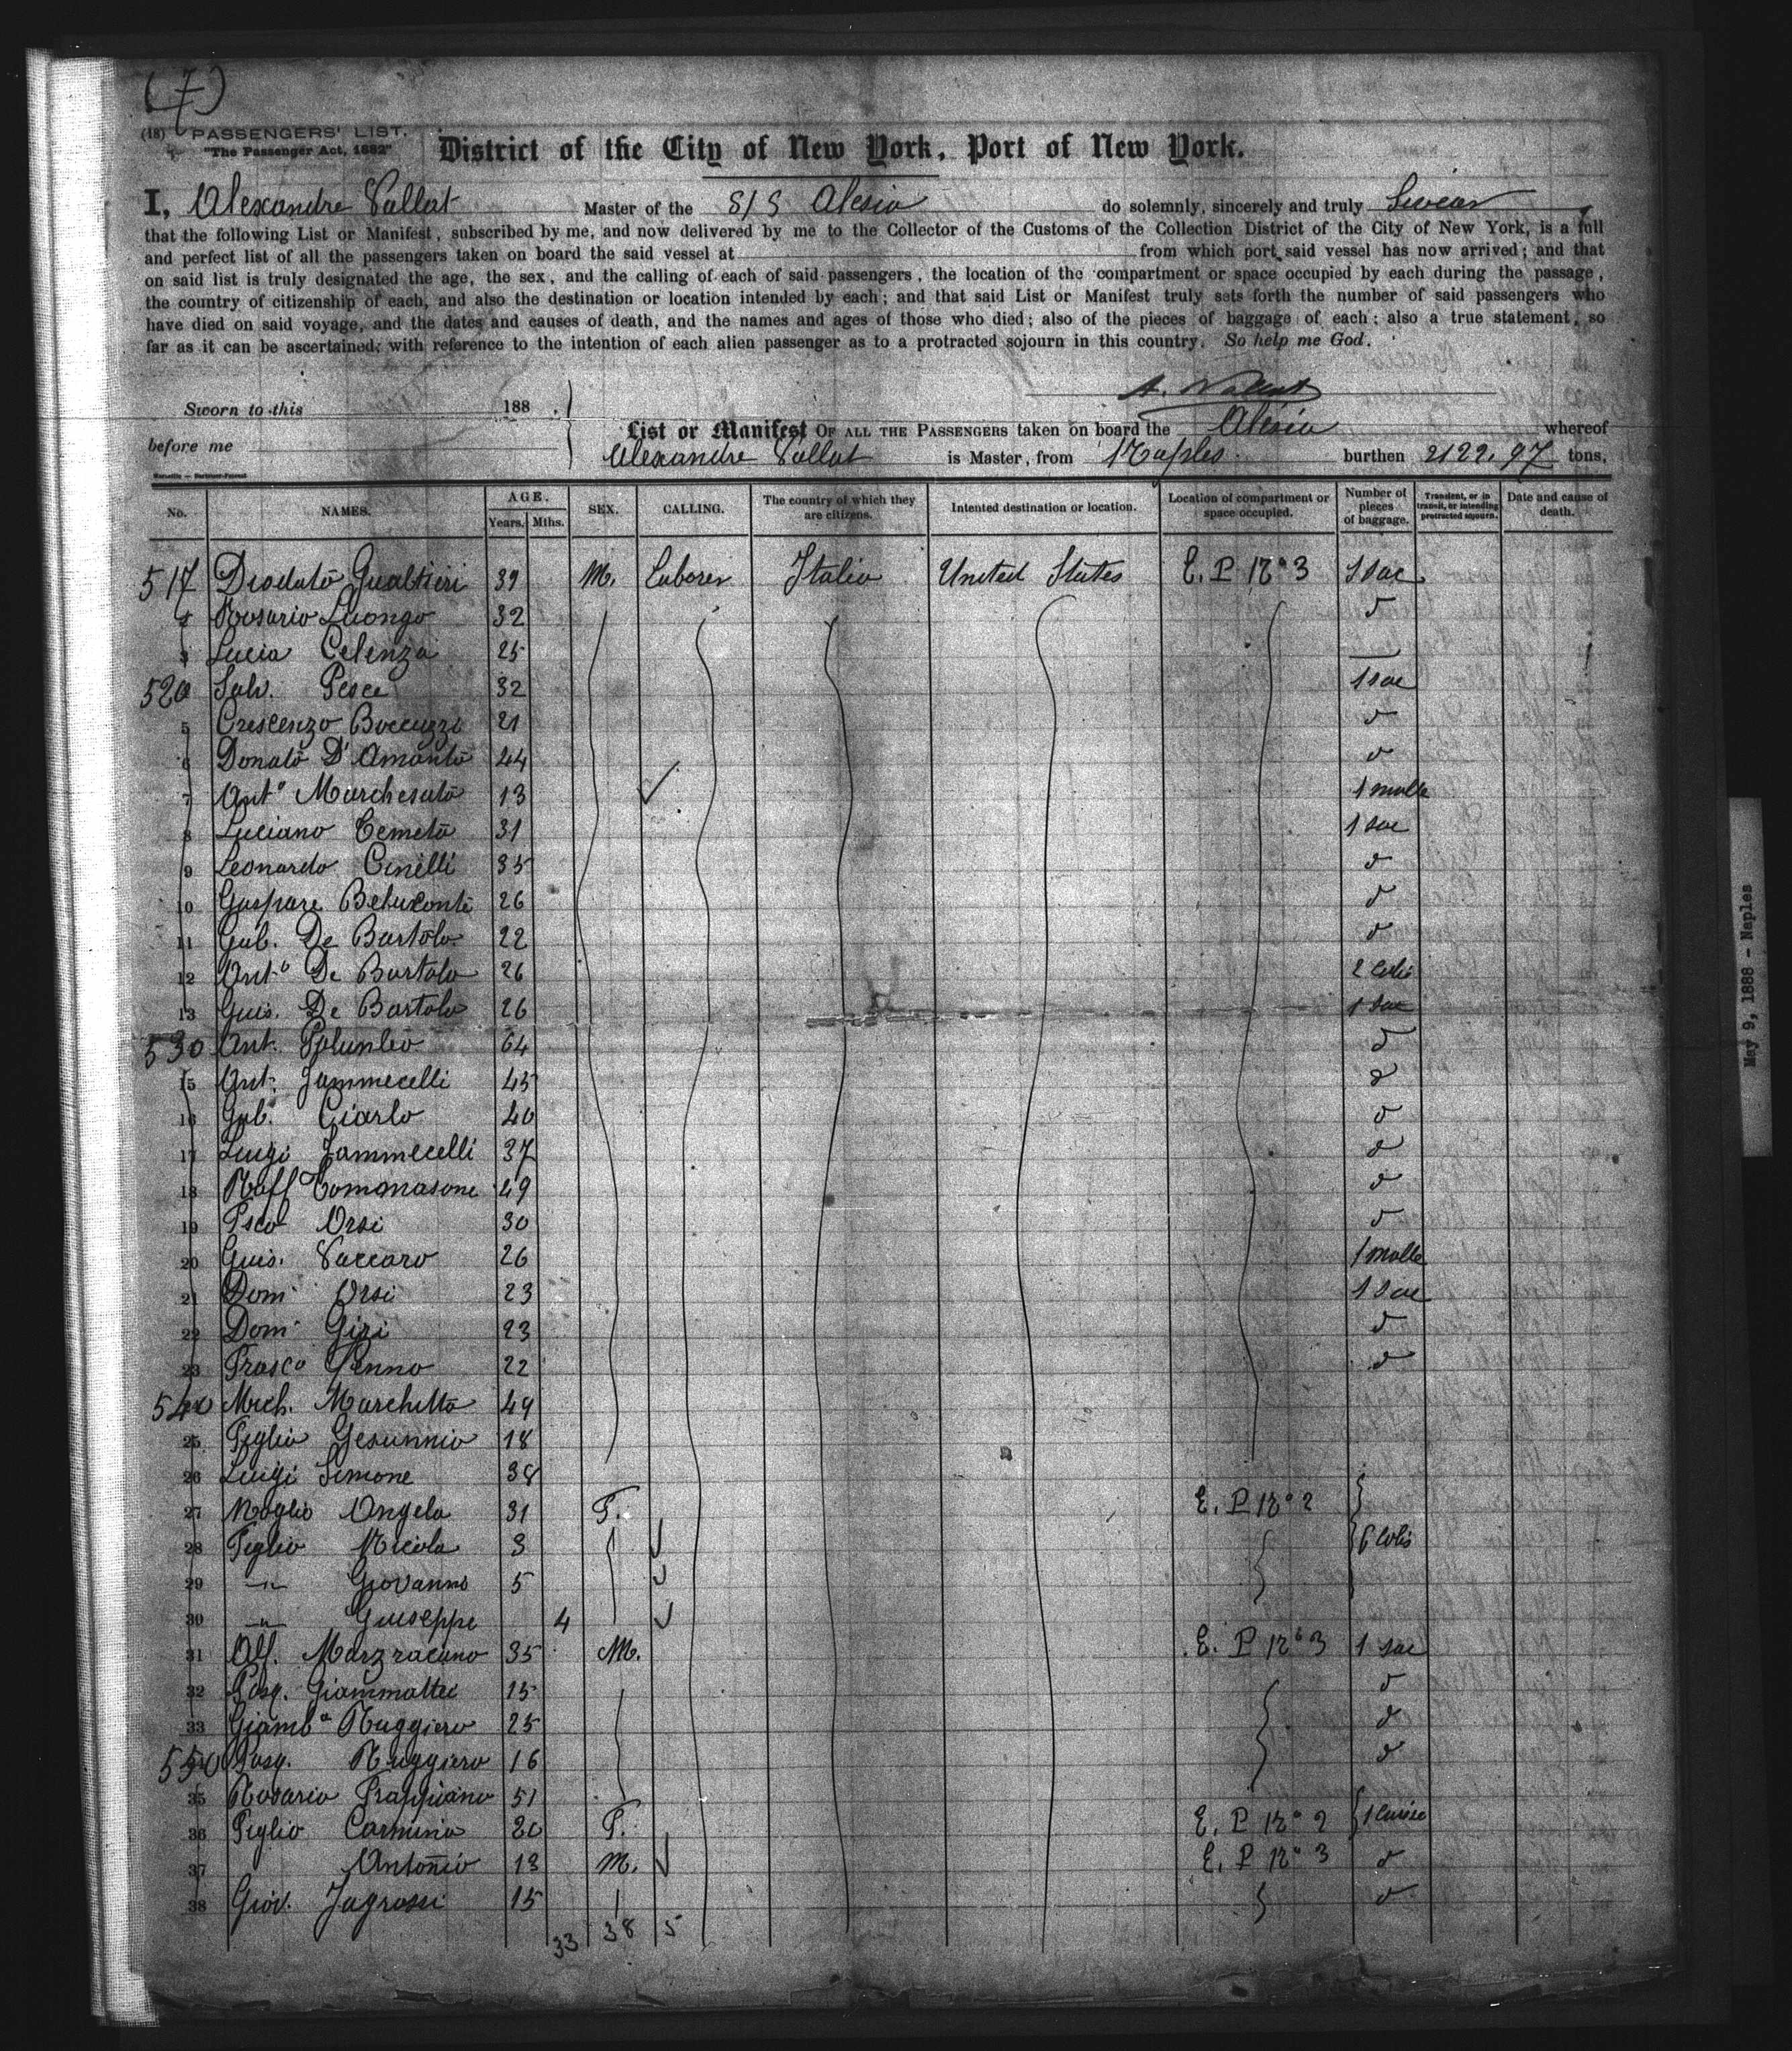 (7)
(18) PASSENGERS' LIST.
"The Passenger Act, 1882"
District of the City of New York, Port of New York.
I, Alexandre Vallat Master of the S/S Alesia do solemnly, sincerely and truly Swear
that the following List or Manifest, subscribed by me, and now delivered by me to the Collector of the Customs of the Collection District of the City of New York, is a full
and perfect list of all the passengers taken on board the said vessel at from which port said vessel has now arrived; and that
on said list is truly designated the age, the sex, and the calling of each of said passengers, the location of the compartment or space occupied by each during the passage,
the country of citizenship of each, and also the destination or location intended by each; and that said List or Manifest truly sets forth the number of said passengers who
have died on said voyage, and the dates and causes of death, and the names and ages of those who died; also of the pieces of baggage of each; also a true statement, so
far as it can be ascertained, with reference to the intention of each alien passenger as to a protracted sojourn in this country. So help me God.
A. Vallat
Sworn to this 188 .
before me
List or Manifest OF ALL THE PASSENGERS taken on board the Alesia whereof
Alexandre Vallat is Master, from Naples burthen 2122.97 tons.
No. NAMES. AGE. Years. Mths. SEX. CALLING. The country of which they are citizens. Intented destination or location. Location of compartment or space occupied. Number of pieces of baggage. Transient, or in transit, or intending protracted sojourn. Date and cause of death.
517 Diodato Gualtieri 39 M. Laborer Italia United States E. P No 3 1 sac
2 Rosario Luongo 32 d
3 Lucia Celenza 25 —
520 Salv. Pesce 32 1 sac
5 Crescenzo Boccuzzi 21 d
6 Donato D'Amanto 44 d
7 Anto Marchesato 13 1 malle
8 Luciano Cemeta 31 1 sac
9 Leonardo Cinelli 35 d
10 Gaspare 26 d
11 Gab. De Bartolo 22 d
12 Anto De Bartolo 26 2 colis
13 Gius. De Bartolo 26 1 sac
530 Ant. Palumbo 64 d
15 Ant. Jammecelli 45 d
16 Gab. Ciarlo 40 d
17 Luigi Jammecelli 37 d
18 Raff Tommasone 49 d
19 Orsi 30 d
20 Gius. Vaccaro 26 1 malle
21 Dom Orsi 23 1 sac
22 Dom Gizi 23 d
23 Frasco Penno 22 d
540 Mich. Marchitto 49
25 Figlio Gesunnio 18
26 Luigi Simone 38
27 Moglio Angela 31 F. E. P No 2
28 Figlio Nicola 3 6 colis
29 —"— Giovanni 5
30 —"— Giuseppe 4
31 Alf. Marzracano 35 M. E. P No 3 1 sac
32 Pasq. Giammattei 15 d
33 Giamba Ruggiero 25 d
550 Pasq. Ruggiero 16 d
35 Rosario 51
36 Figlio Carmina 20 F. E. P No 2 1 caisse
37 Antonio 13 M. E. P No 3 d
38 Giov. Jagrossi 15 d
33 38 5
May 9, 1888 - Naples